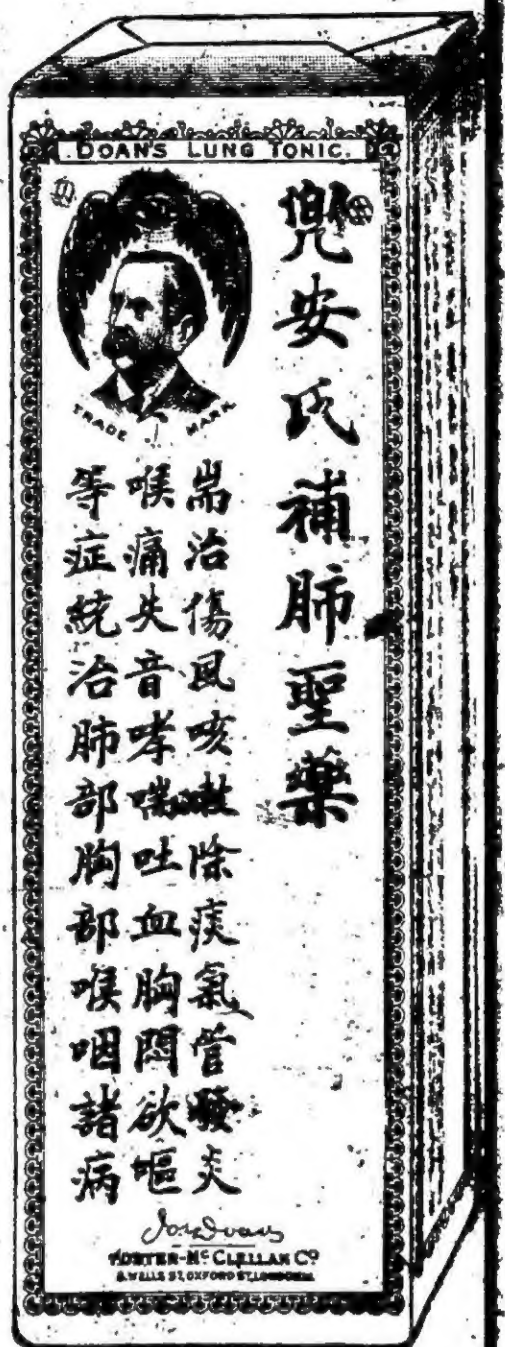 DOAN'S LUNG TONIC.
TRADE MARK
兜安氏補肺聖藥
耑治傷風咳嗽除痰氣管發炎
喉痛失音哮喘吐血胸悶欲嘔
等症統治肺部胸部喉咽諸病
FOSTER-McCLELLAN Co
8, WELLS ST, OXFORD ST, LONDON